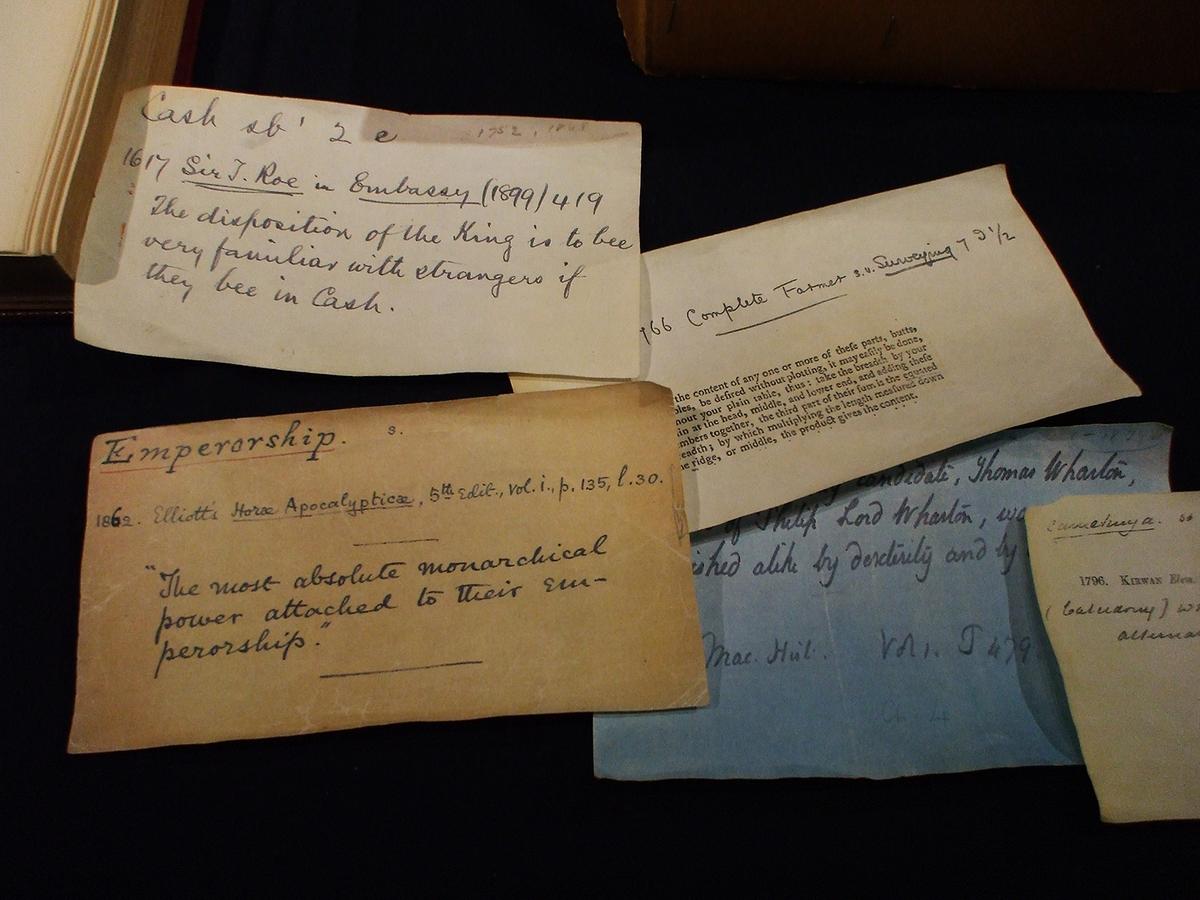 Cash sb¹ 2 e
1752,
1617 Sir T. Roe in Embassy (1899) 419
The disposition of the King is to bee
very familiar with strangers if
they bee in Cash.
766 Complete Farmer s.v. Surveying 7 I 1/2
the content of any one or more of these parts, butts,
bles, be defired without plotting, it may easily be done,
hout your plain table, thus: take the breadth by your
in at the head, middle, and lower end, and adding these
mbers together, the third part of their sum is the equated
eadth; by which multiplying the length measured down
e ridge, or middle, the product gives the content.
Emperorship. s.
1862. Elliott's Horæ Apocalypticæ, 5th Edit., vol. i., p. 135, l. 30.
"The most absolute monarchical
power attached to their Em-
perorship."
candidate, Thomas Wharton,
of Philip Lord Wharton, wa
ished alike by dexterity and by
Mac. Hist. Vol 1. 479
Ch. 4
1796. KIRWAN Elem.